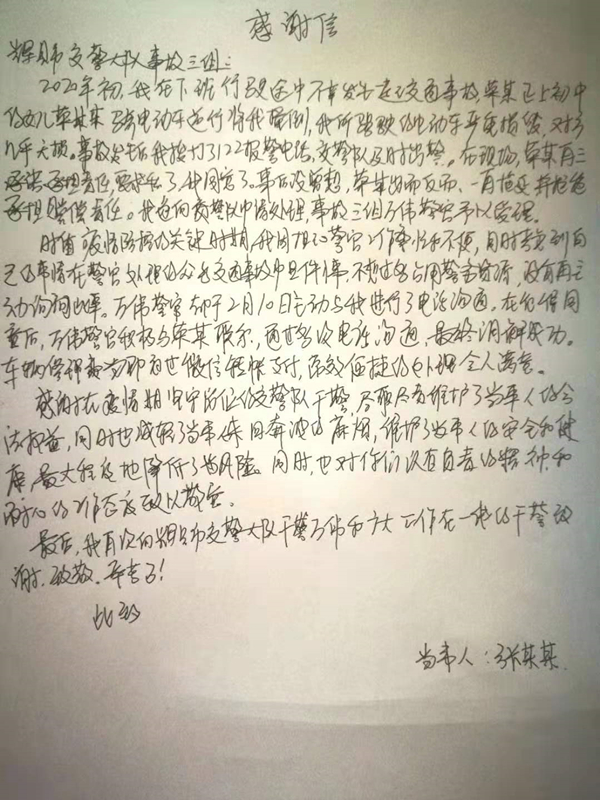 感谢信
辉县市交警大队事故三组：
2020年初，我在下班行驶途中不幸发生道路交通事故，草某正上初中
的女儿草某某骑电动车逆行将我撞倒，我所驾驶的电动车严重损毁，对方
几乎无损。事故发生后我拨打了122报警电话，交警队及时出警。在现场，草某再三
承诺承担责任，要求私了，我同意了。事后没曾想，草某出而反而，一再拖延并拒绝
承担赔偿责任。我遂向交警队申请处理，事故三组万伟警官予以受理。
时值疫情防控的关键时期，我因担心警官工作繁忙和不便，同时考虑到自
己的事情在警官处理的众多交通事故中是件小事，不想过多占用警力资源，没有再主
动询问此事。万伟警官却于2月10日主动与我进行了电话沟通。在征得同
意后，万伟警官积极与草某联系，通过多次电话沟通，最终调解成功。
车辆修理费当即通过微信转账支付，高效便捷的处理令人满意。
感谢在疫情期坚守岗位的交警队干警，尽职尽责维护了当事人的合
法权益，同时也减轻了当事人来回奔波的麻烦，维护了当事人的安全和健
康，最大程度地降低了风险。同时，也对你们认真负责的精神和
耐心的工作态度致以敬意。
最后，我再次向辉县市交警大队干警万伟和广大工作在一线的干警致
谢、致敬，辛苦了！
此致
当事人：张某某